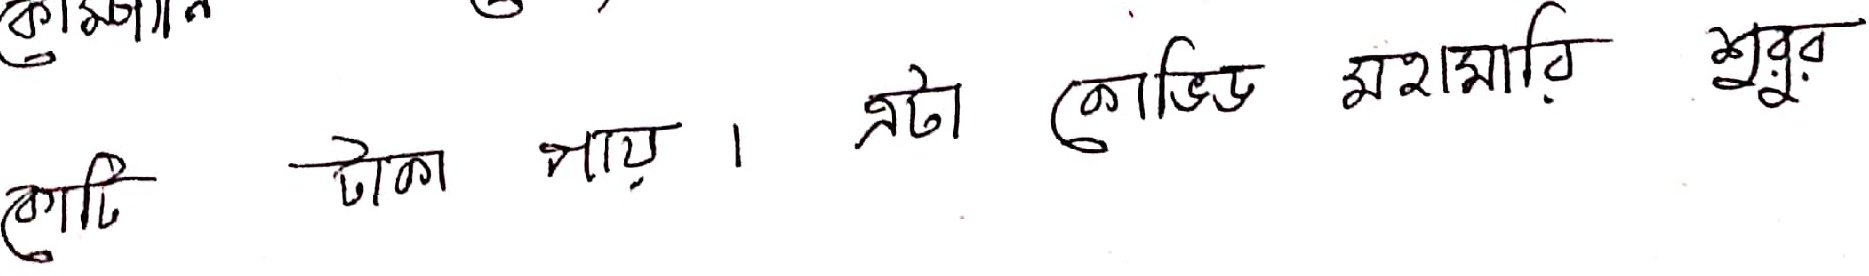 কোটি টাকা পায়। এটা কোভিড মহামারি শুরুর